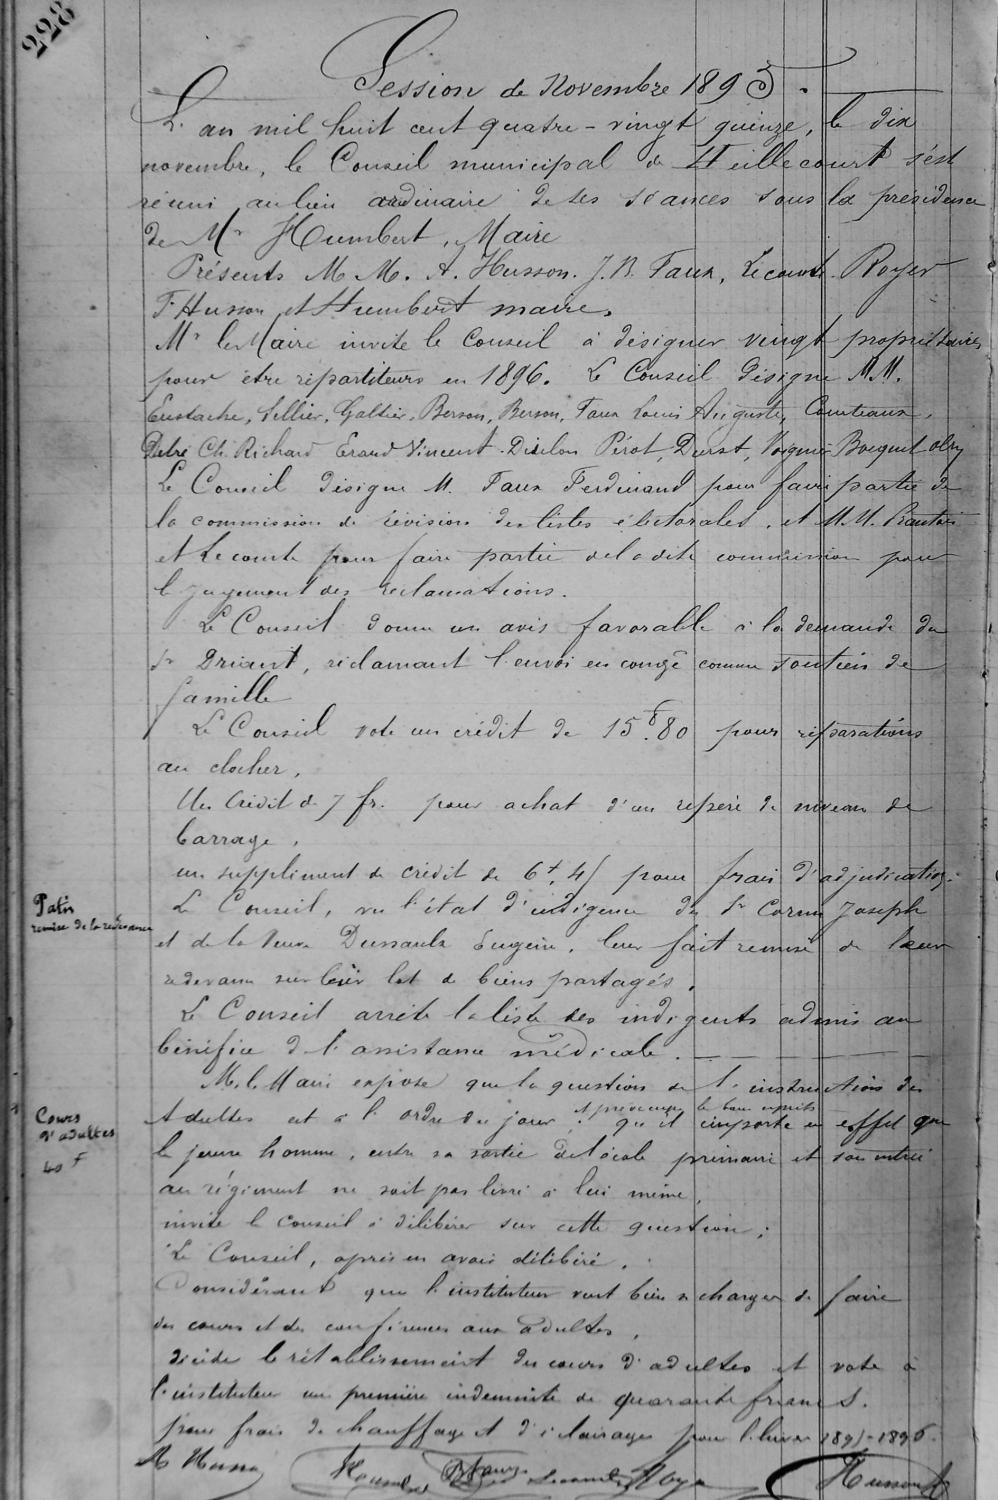 228
Session de Novembre 1895.
L'an mil huit cent quatre-vingt quinze, le dix
novembre, le Conseil municipal de s'est
réuni au lieu ordinaire de ses séances sous la présidence
de Mr Humbert, Maire
Présents M M. A. Husson. J.B. Faux, Lecomte. Royer
F. Husson et Humbert maire.
Mr le Maire invite le Conseil à désigner vingt propriétaires
pour être répartiteurs en 1896. Le Conseil désigne M M.
Eustache, Sellier, Galtier, Berson, Berson, Faux Louis Auguste,
Ch. Richard Erard Vincent. Pérot, Durst, Bocquet Olry
Le Conseil désigne M. Faux Ferdinand pour faire partie de
la commission de révision des listes électorales, et M M.
et Lecomte pour faire partie de ladite commission pour
le jugement des réclamations.
Le Conseil donne un avis favorable à la demande du
Sr Driant, réclamant l'envoi en congé comme soutien de
famille
Le Conseil vote un crédit de 15f.80 pour réparations
au clocher.
Un Crédit de 7 fr. pour achat d'un repère de niveau de
barrage.
un supplément de crédit de 6f,45 pour frais d'adjudication.
Patis
remise de la redevance
Le Conseil, vu l'état d'indigence du Sr Joseph
et de la Veuve Eugénie, leur fait remise de leur
redevance sur leur lot de biens partagés.
Le Conseil arrête la liste des indigents admis au
bénéfice de l'assistance médicale.
M. le Maire expose que la question de l'instruction des
Cours
d'adultes
40 f
Adultes est à l'ordre du jour ; qu'il importe en effet que
le jeune homme, entre sa sortie de l'école primaire et son entrée
au régiment ne soit pas livré à lui même,
invite le Conseil à délibérer sur cette question ;
Le Conseil, après en avoir délibéré,
Considérant que l'instituteur veut bien se charger de faire
des cours et des conférences aux adultes,
décide le rétablissement du cours d'adultes et vote à
l'instituteur une première indemnité de quarante francs.
pour frais de chauffage et d'éclairage pour l'hiver 1895-1896.
A Husson Royer Husson